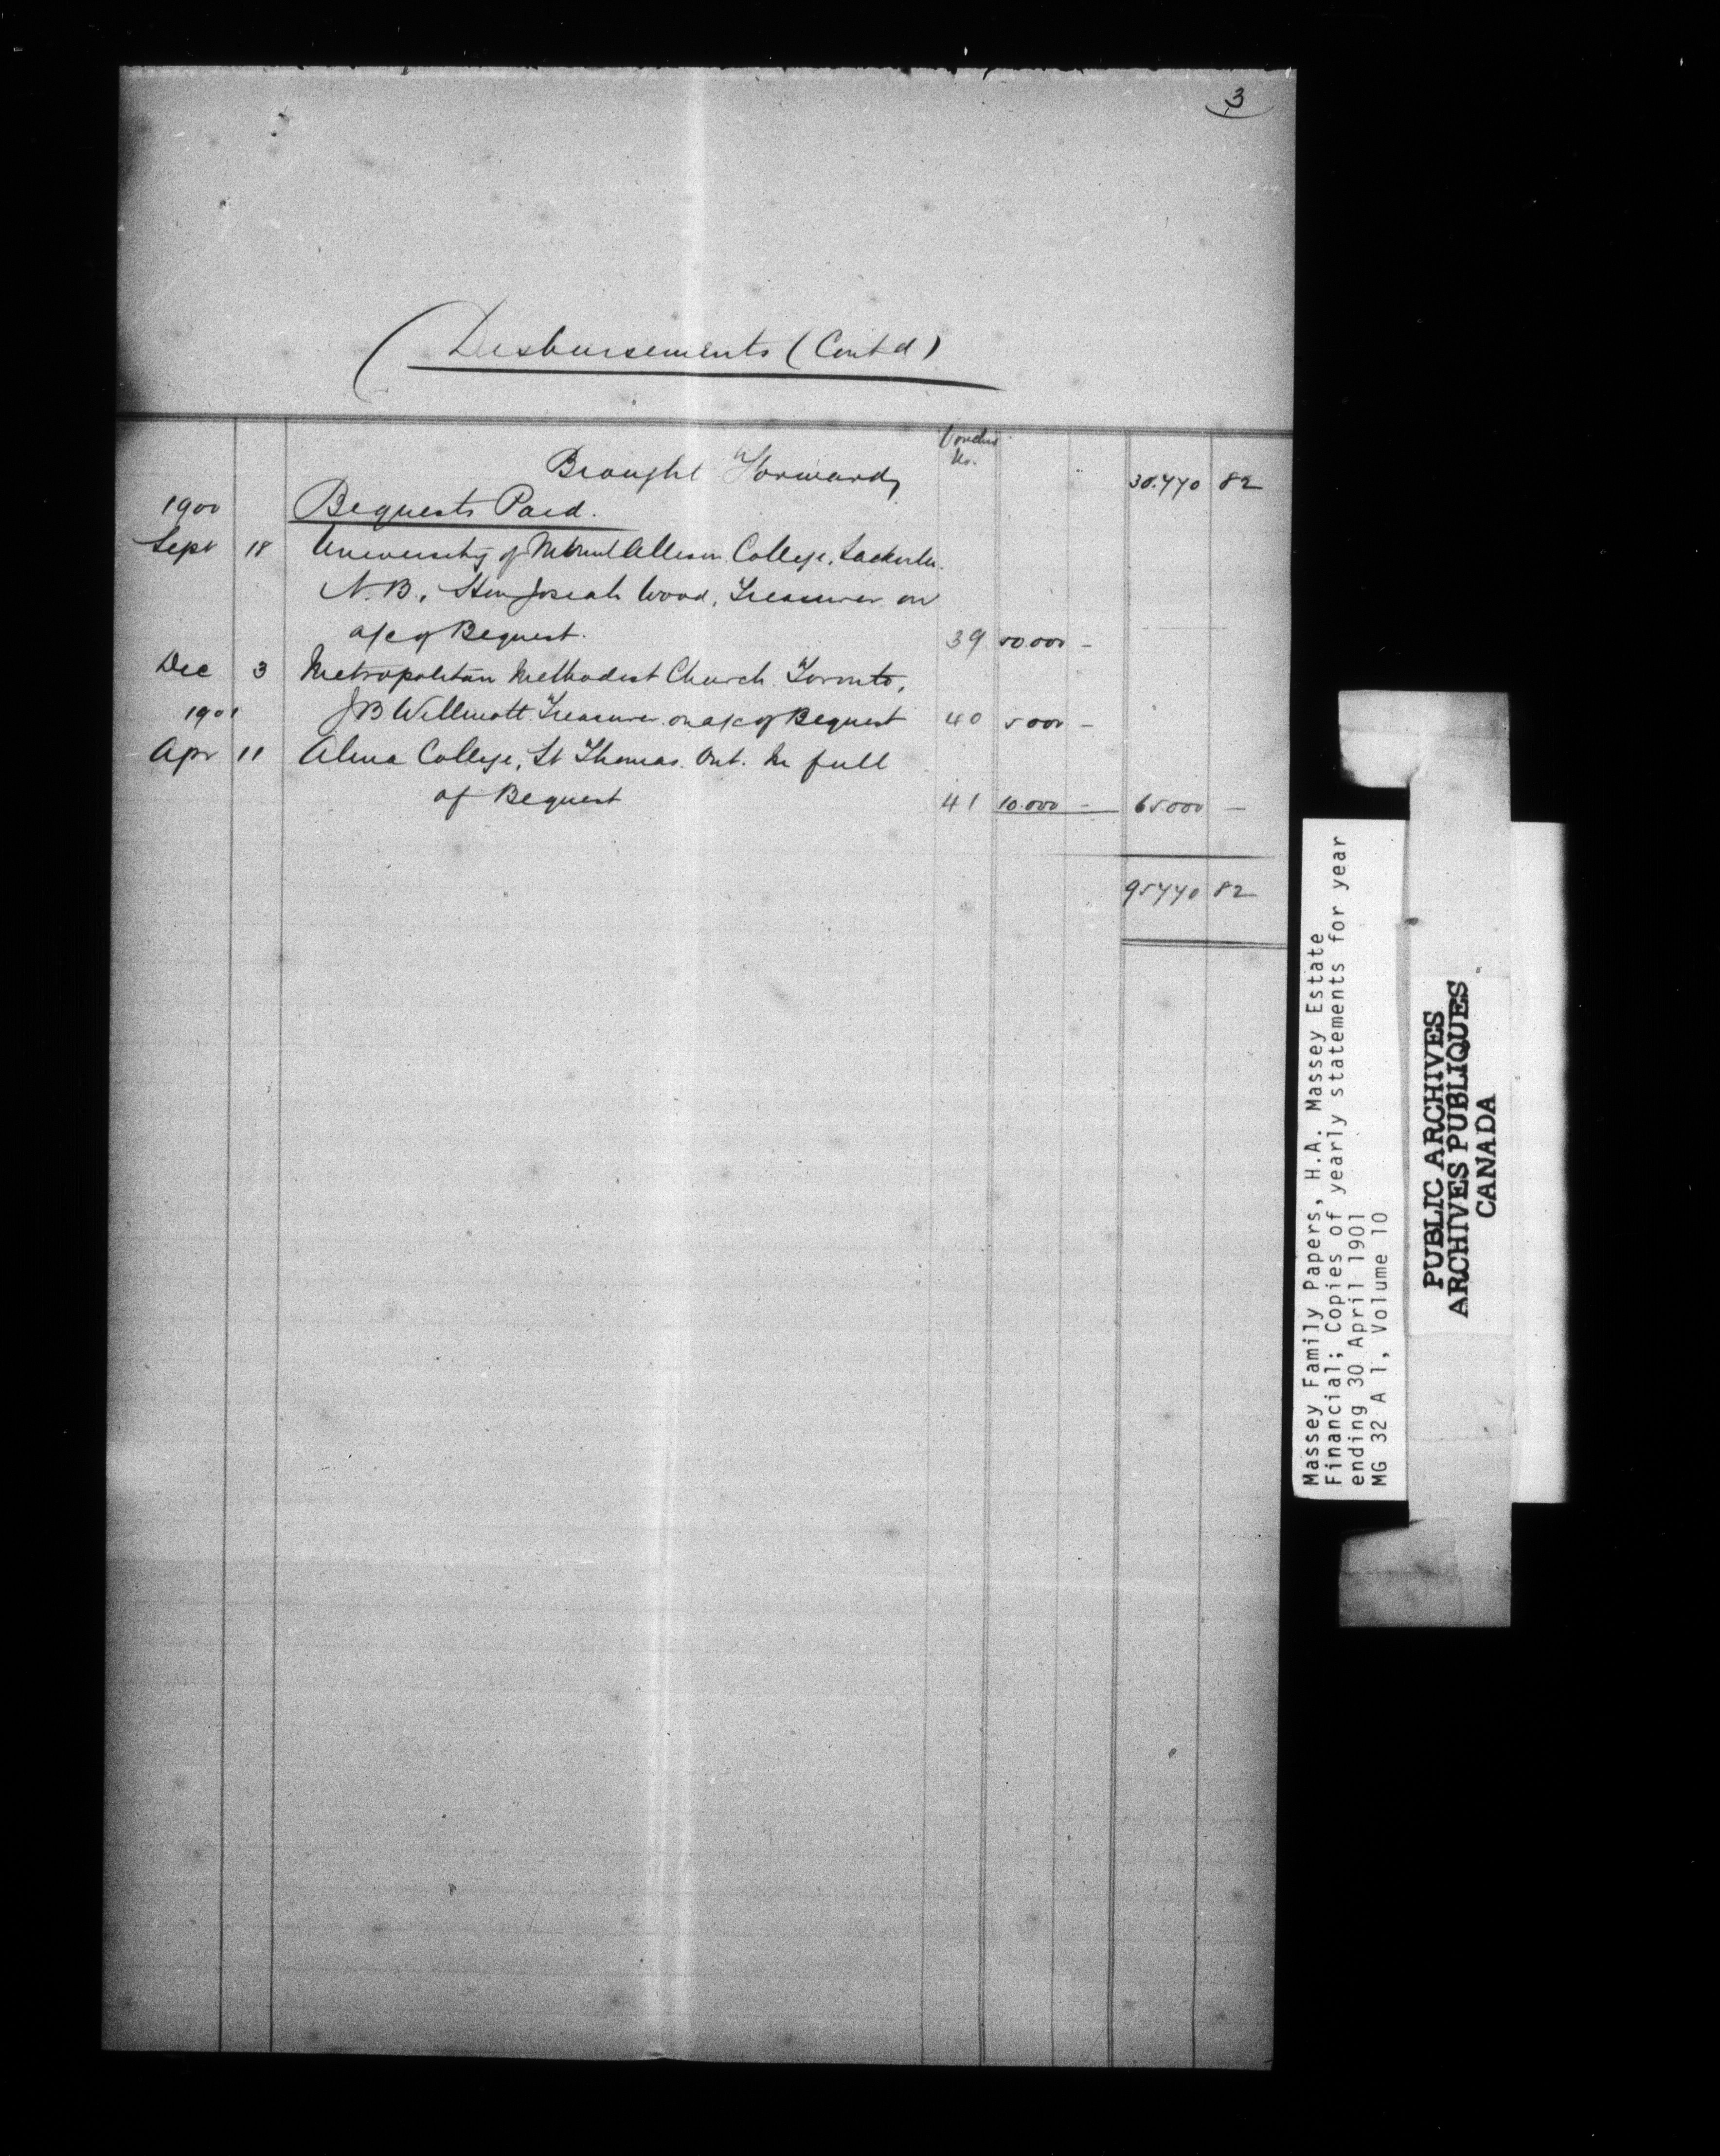 3
Disbursements (Contd)
Voucher
No.
Brought Forward, 30.770 82
1900 Bequests Paid.
Sept 18 University of Mount Allison College, Sackville.
N.B., Hon Josiah Wood, Treasurer on
a/c of Bequest. 39 50.000 –
Dec 3 Metropolitan Methodist Church Toronto,
1901 JB Willmott Treasurer on a/c of Bequest 40 5000 –
Apr 11 Alma College, St Thomas. Ont. In full
of Bequest 41 10.000 – 65.000 –
95770 82
Massey Family Papers, H.A. Massey Estate
Financial; Copies of yearly statements for year
ending 30 April 1901
MG 32 A 1, Volume 10
PUBLIC ARCHIVES
ARCHIVES PUBLIQUES
CANADA